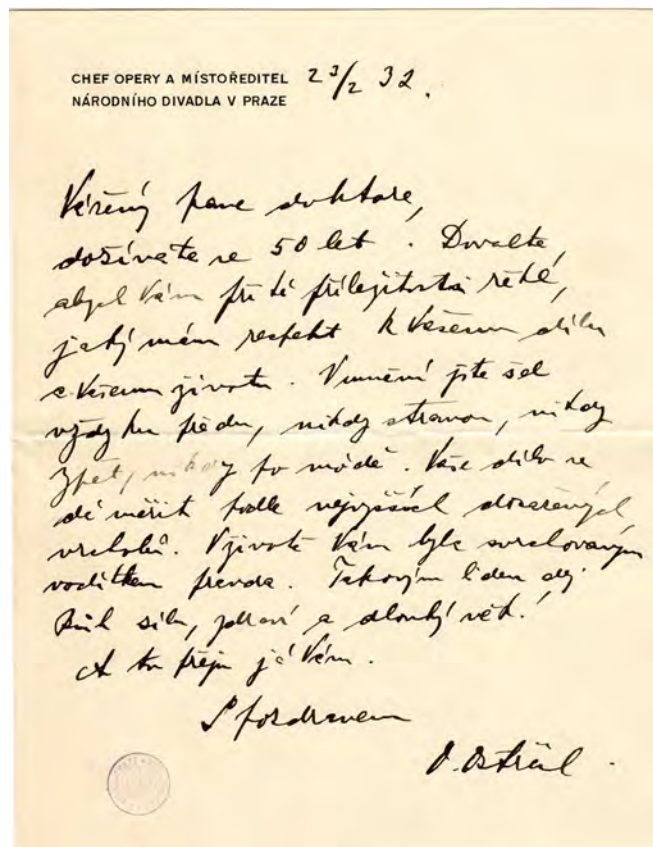 CHEF OPERY A MÍSTOŘEDITEL
NÁRODNÍHO DIVADLA V PRAZE
23/2 32.
Vážený pane doktore,
dožíváte se 50 let. Dovolte,
abych Vám při té příležitosti řekl,
jaký mám respekt k Vašemu dílu
a Vašemu životu. V umění jste šel
vždy ku předu, nikdy stranou, nikdy
zpět, nikdy po módě. Vaše dílo se
dá měřit podle nejvyšších dosažených
vrcholů. V životě Vám byla svrchovaným
vodítkem pravda. Takovým lidem dej
Bůh sílu, zdraví a dlouhý věk!
A to přeju já Vám.
S pozdravem
O. Ostrčil.